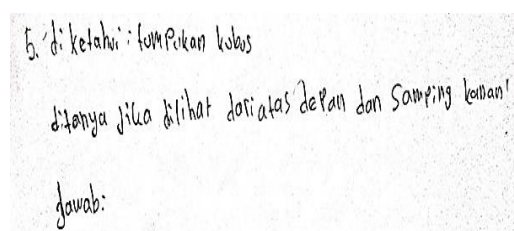 5. diketahui : tumpukan kubus
ditanya jika dilihat dari atas depan dan samping kanan!
Jawab: